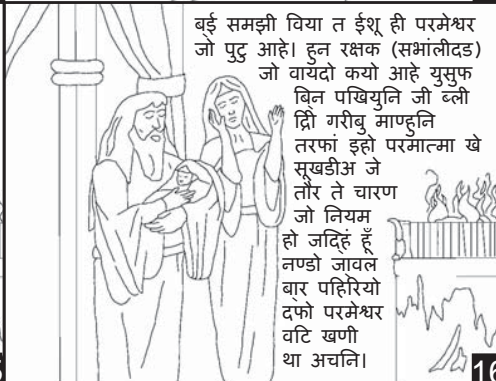 ब॒ई समझी विया त ईशू ही परमेश्वर
जो पुटु आहे। हुन रक्षक (सभांलीदड)
जो वायदो कयो आहे युसुफ
बि॒न पखियुनि जी ब्ली
द्रिी गरीबु माण्हुनि
तरफां इहो परमात्मा खे
सूखडीअ जे
तौर ते चारण
जो नियम
हो जदि॒हिं हूँ
नण्डो जा॒वल
बा॒र पहिरियो
दफो परमेश्वर
वटि खणी
था अचनि।
16